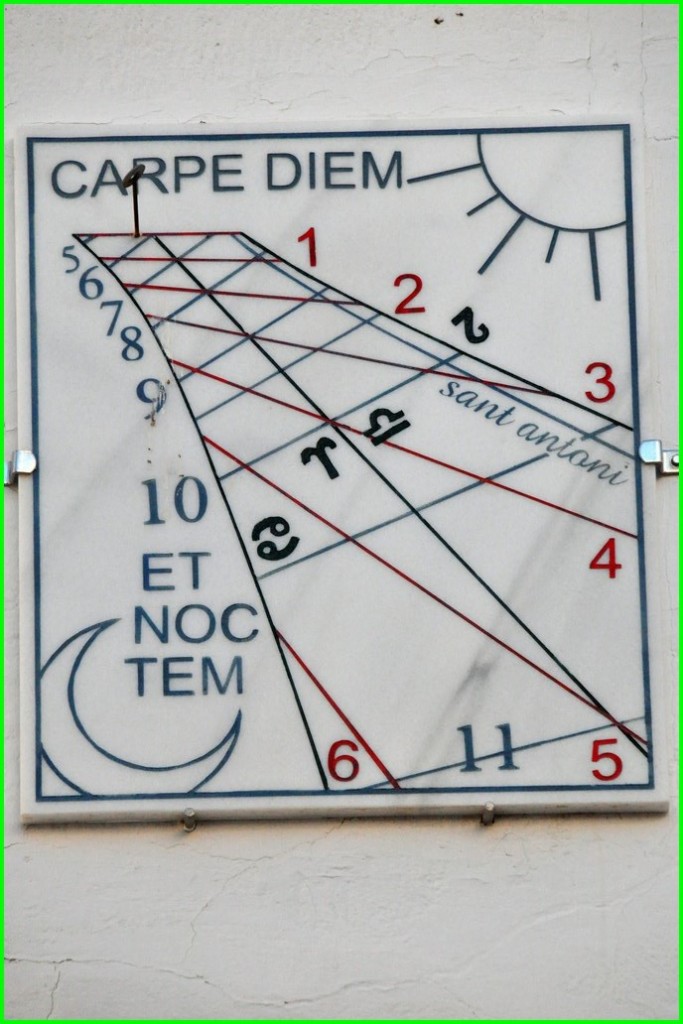 CARPE DIEM
1
2
3
4
5
6
5
6
7
8
9
10
11
♋
♈
♎
sant antoni
ET
NOC
TEM